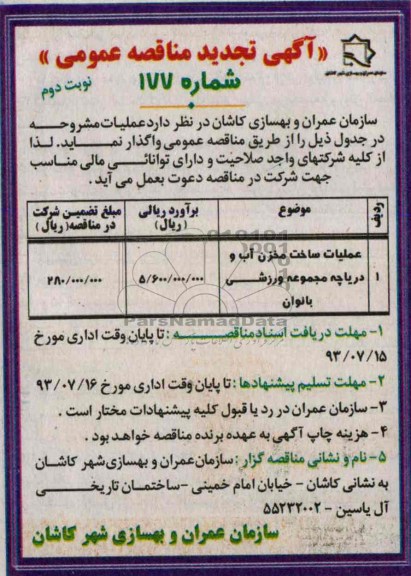 «آگهی تجدید مناقصه عمومی»
شماره ۱۷۷
نوبت دوم
سازمان عمران و بهسازی کاشان در نظر دارد عملیات مشروحه
در جدول ذیل را از طریق مناقصه عمومی واگذار نماید. لذا
از کلیه شرکتهای واجد صلاحیت و دارای توانائی مالی مناسب
جهت شرکت در مناقصه دعوت بعمل می آید.
ردیف موضوع برآورد ریالی (ریال) مبلغ تضمین شرکت در مناقصه (ریال)
۱ عملیات ساخت مخزن آب و دریاچه مجموعه ورزشی بانوان ۵/۶۰۰/۰۰۰/۰۰۰ ۲۸۰/۰۰۰/۰۰۰
ParsNamadData
۱- مهلت دریافت اسناد مناقصه : تا پایان وقت اداری مورخ
۹۳/۰۷/۱۵
۲- مهلت تسلیم پیشنهادها : تا پایان وقت اداری مورخ ۹۳/۰۷/۱۶
۳- سازمان عمران در رد یا قبول کلیه پیشنهادات مختار است .
۴- هزینه چاپ آگهی به عهده برنده مناقصه خواهد بود .
۵- نام و نشانی مناقصه گزار : سازمان عمران و بهسازی شهر کاشان
به نشانی کاشان - خیابان امام خمینی - ساختمان تاریخی
آل یاسین - ۵۵۲۳۲۰۰۲
سازمان عمران و بهسازی شهر کاشان